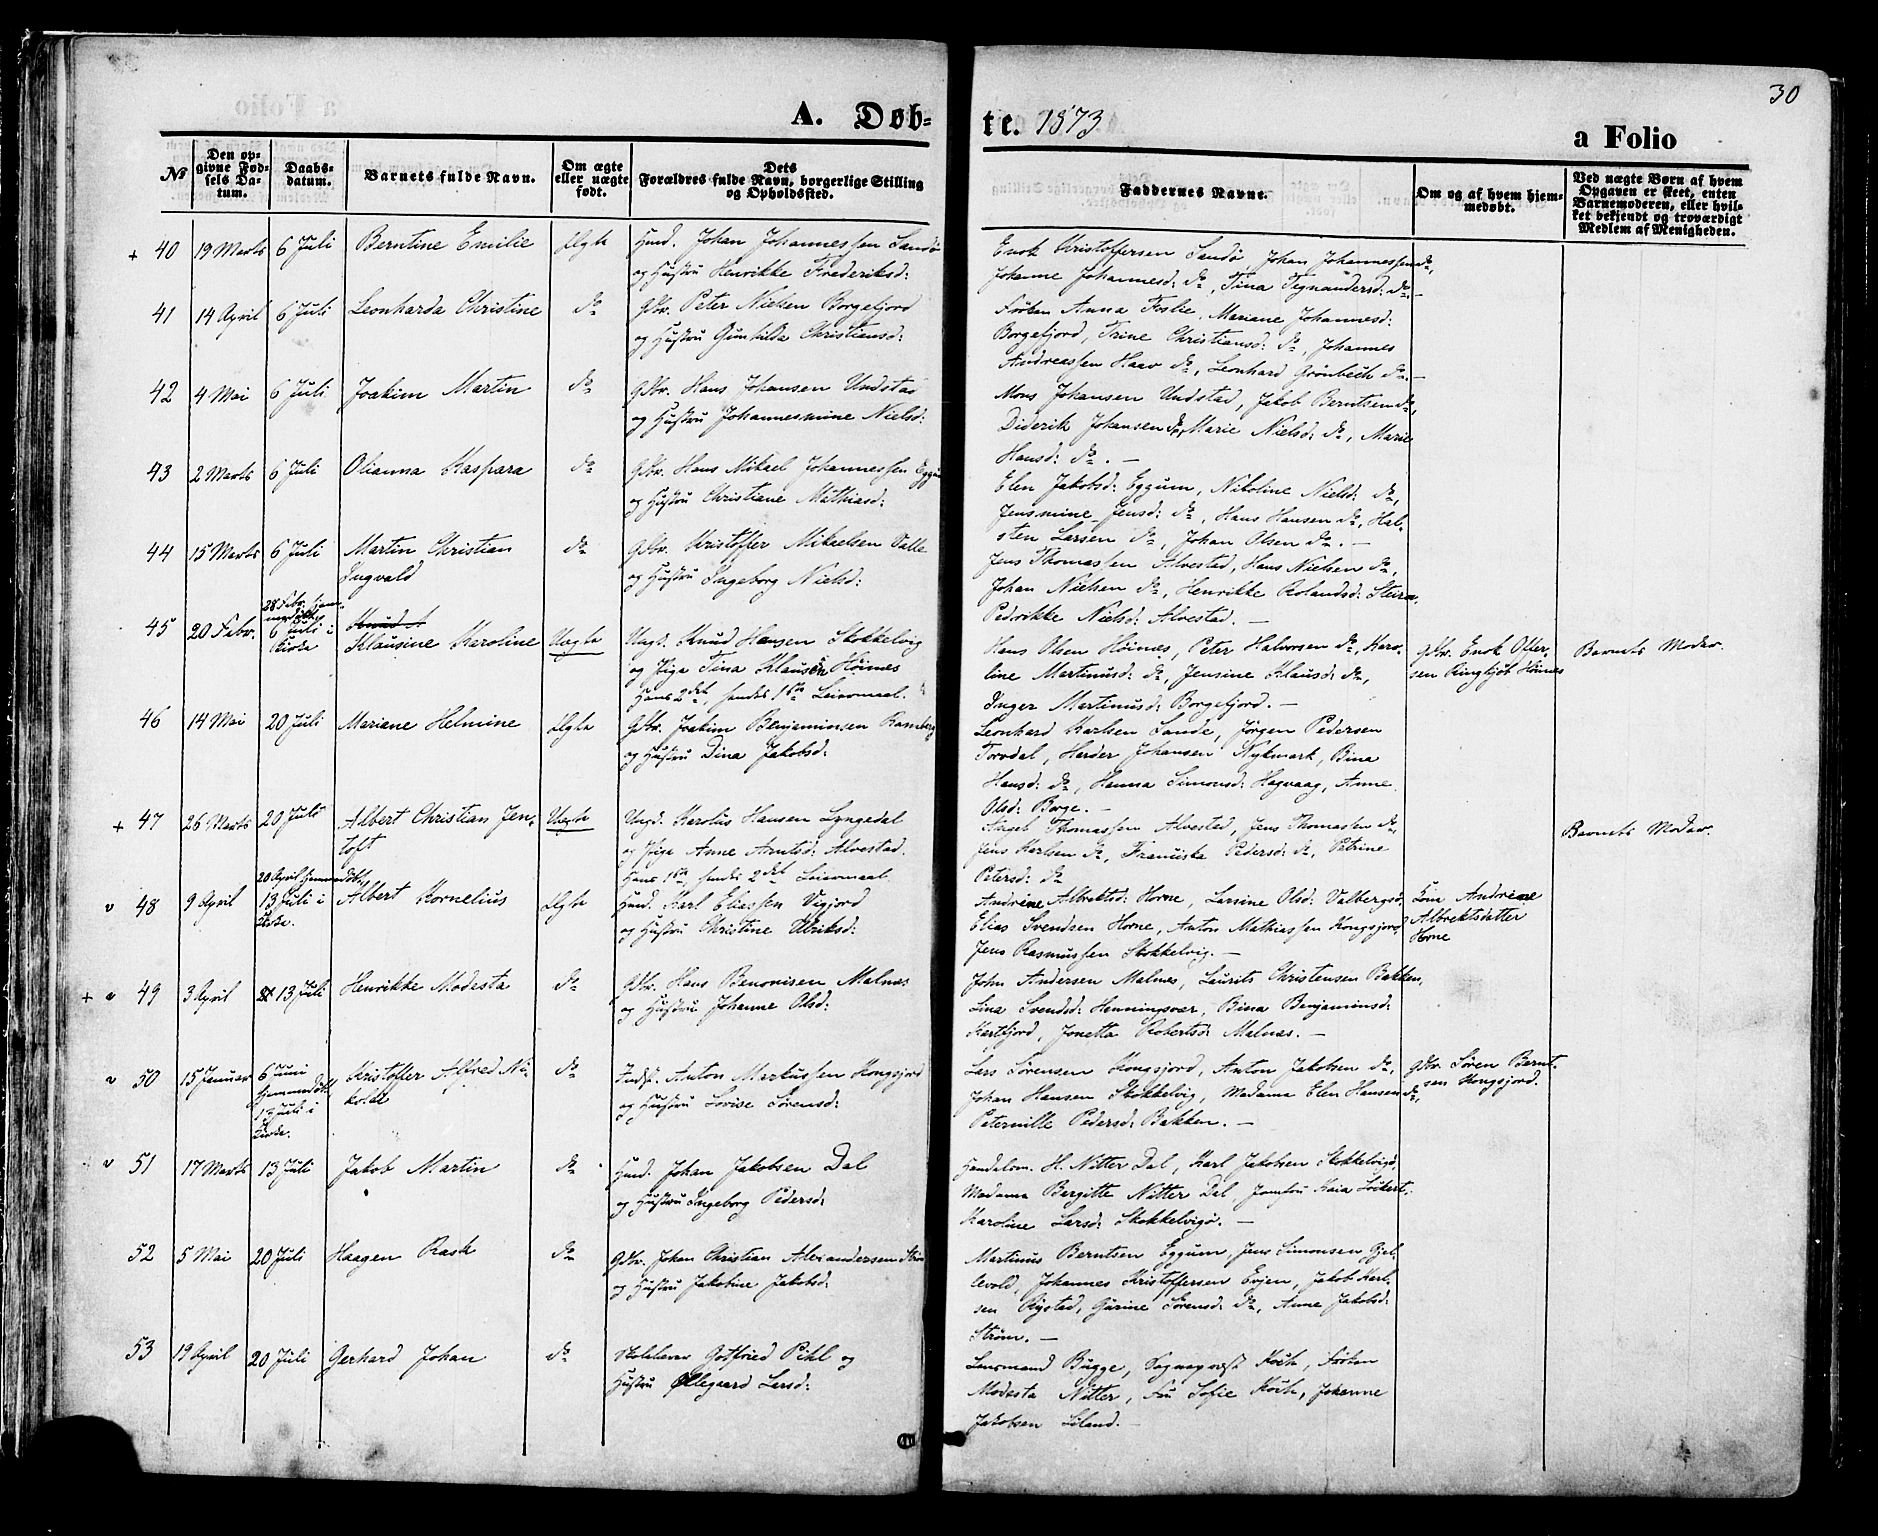 30
A. Døb-
te. 1873
a Folio
No
Den op-
givne Fød-
sels Da-
tum.
Daabs-
datum.
Barnets fulde Navn.
Om ægte
eller uægte
født.
Dets
Forældres fulde Navn, borgerlige Stilling
og Opholdssted.
Faddernes Navne.
Om og af hvem hjem-
medøbt.
Ved uægte Børn af hvem
Opgaven er skeet, enten
Barnemoderen, eller hvil-
ket bekjendt og troværdigt
Medlem af Menigheden.
+ 40 19 Marts 6 Juli Berntine Emilie Ægte Huusm. Johan Johannessen Sandø
og Hustru Henrikke Frederiksd:
Enok Christoffersen Sandø, Johan Johannessen do,
Johanne Johannesd: do, Tina Tegnandersd: do.-
41 14 April 6 Juli Leonharda Christine do Gbr. Peter Nielsen Borgefjord
og Hustru Gunhilda Christiansd:
Frøken Anna Foslie, Mariane Johannesd:
Borgefjord, Trine Christiansd: do, Johannes
Andreassen Haav do, Leonhard Grönbech do.-
42 4 Mai 6 Juli Joakim Martin do Gbr. Hans Johansen Undstad
og Hustru Johannesmine Nielsd:
Mons Johansen Undstad, Jakob Berntsen do,
Diderik Johansen do, Marie Nielsd: do, Marie
Hansd: do. -
43 2 Marts 6 Juli Olianna Kaspara do Gbr. Hans Mikael Johannessen Eggum
og Hustru Christiane Mathiasd:
Elen Jakobsd: Eggum, Nikoline Nielsd: do,
Jensmine Jensd: do, Hans Hansen do, Hal-
sten Larsen do, Johan Olsen do. -
44 15 Marts 6 Juli Martin Christian
Ingvald
do Gbr. Kristoffer Mikaelsen Valle
og Hustru Ingeborg Nielsd:
Jens Thomassen Alvestad, Hans Nielsen do,
Johan Nielsen do, Henrikke Rolandsd: Steira
Pedrikke Nielsd: Alvestad. -
45 20 Febr. 28 Febr. hjem-
6 Juli i
Kirke
Knud A
Klausine Karoline Uægte Ungk. Knud Hansen Stokkelvig
og Pige Tina Klausen Höines
Hans 2det, hendes 1ste Leiermaal.
Hans Olsen Höines, Peter Halvorsen do, Karo-
line Martinusd: do, Jensine Klausd: do,
Inger Martinusd: Borgefjord. -
Gbr. Enok Ofter-
sen Ringljot Höines
Barnets Moder.
46 14 Mai 20 Juli Mariane Helmine Ægte Gbr. Joakim Benjaminsen Ramberg
og Hustru Dina Jakobsd:
Leonhard Karlsen Sande, Jørgen Pedersen
Torvdal, Harder Johansen Nykmark, Bina
Hansd: do, Hanna Simonsd: Hagvaag, Anne
Olsd: Borge. -
+ 47 26 Marts 20 Juli Albert Christian Jen-
toft
Uægte Ungk. Karolus Hansen Lyngedal
og Pige Anne Arntsd: Alvestad.
Hans 1ste, hendes 2det Leiermaal
Angel Thomassen Alvestad, Jens Thomassen do,
Jens Karlsen do, Franciska Pedersd: do, Petrine
Petersd: do
Barnets Moder.
v 48 9 April 20 April hjemmedöbt,
13 Juli i
Kirke.
Albert Kornelius Ægte Huusm. Karl Eliassen Vigjord
og Hustru Christine Ulriksd:
Andrine Albrektsd: Horne, Larsine Olsd: Valbergsö,
Elias Svendsen Horne, Anton Mathiassen Kongsjord
Jens Rasmussen Stokkelvig. -
Kone Andrine
Albrektsdatter
Horne
+ v 49 3 April 13 Juli Henrikke Modesta do Gbr. Hans Benonisen Malnæs
og Hustru Johanne Olsd:
John Andersen Malnes, Laurits Christensen Bakken,
Lina Svendsd: Henningsvær, Bina Benjaminsd:
Kartfjord, Jonetta Robertsd: Malnæs. -
v 50 15 Januar 6 Juni
hjemmedöbt,
13 Juli i
Kirke.
Kristoffer Alfred Ni-
kolai
do Inds. Anton Markussen Kongsjord
og Hustru Lovise Sörensd:
Lars Sörensen Kongsjord, Anton Jakobsen do,
Johan Hansen Stokkelvig, Madame Elen Hansen do,
Pernille Pedersd: Bakken. -
Gbr. Sören Bernt-
sen Kongsjord.
v 51 17 Marts 13 Juli Jakob Martin do Huusm. Johan Jakobsen Dal
og Hustru Ingeborg Pedersd:
Handelsm. H. Nitter Dal, Karl Jakobsen Stokkelvigö,
Madame Bergitte Nitter Dal, Jomfru Kaia Lökert,
Karoline Larsd: Stokkelvigö. -
52 5 Mai 20 Juli Haagen Rask do Gbr. Johan Christian Alexandersen Ström
og Hustru Jakobine Jakobsd:
Martinus Berntsen Eggum, Jens Simonsen Gjel-
levold, Johannes Kristoffersen Evjen, Jakob Karl-
sen Rystad, Gurine Sörensd: do, Anne Jakobsd:
Ström. -
53 19 April 20 Juli Gerhard Johan do Skolelærer Gotfried Pihl og
Hustru Ollegaard Larsd:
Lensmand Bugge, Sognepræst Koch, Frøken
Modesta Nitter, Fru Sofie Koch, Johanne
Jakobsen Liland. -